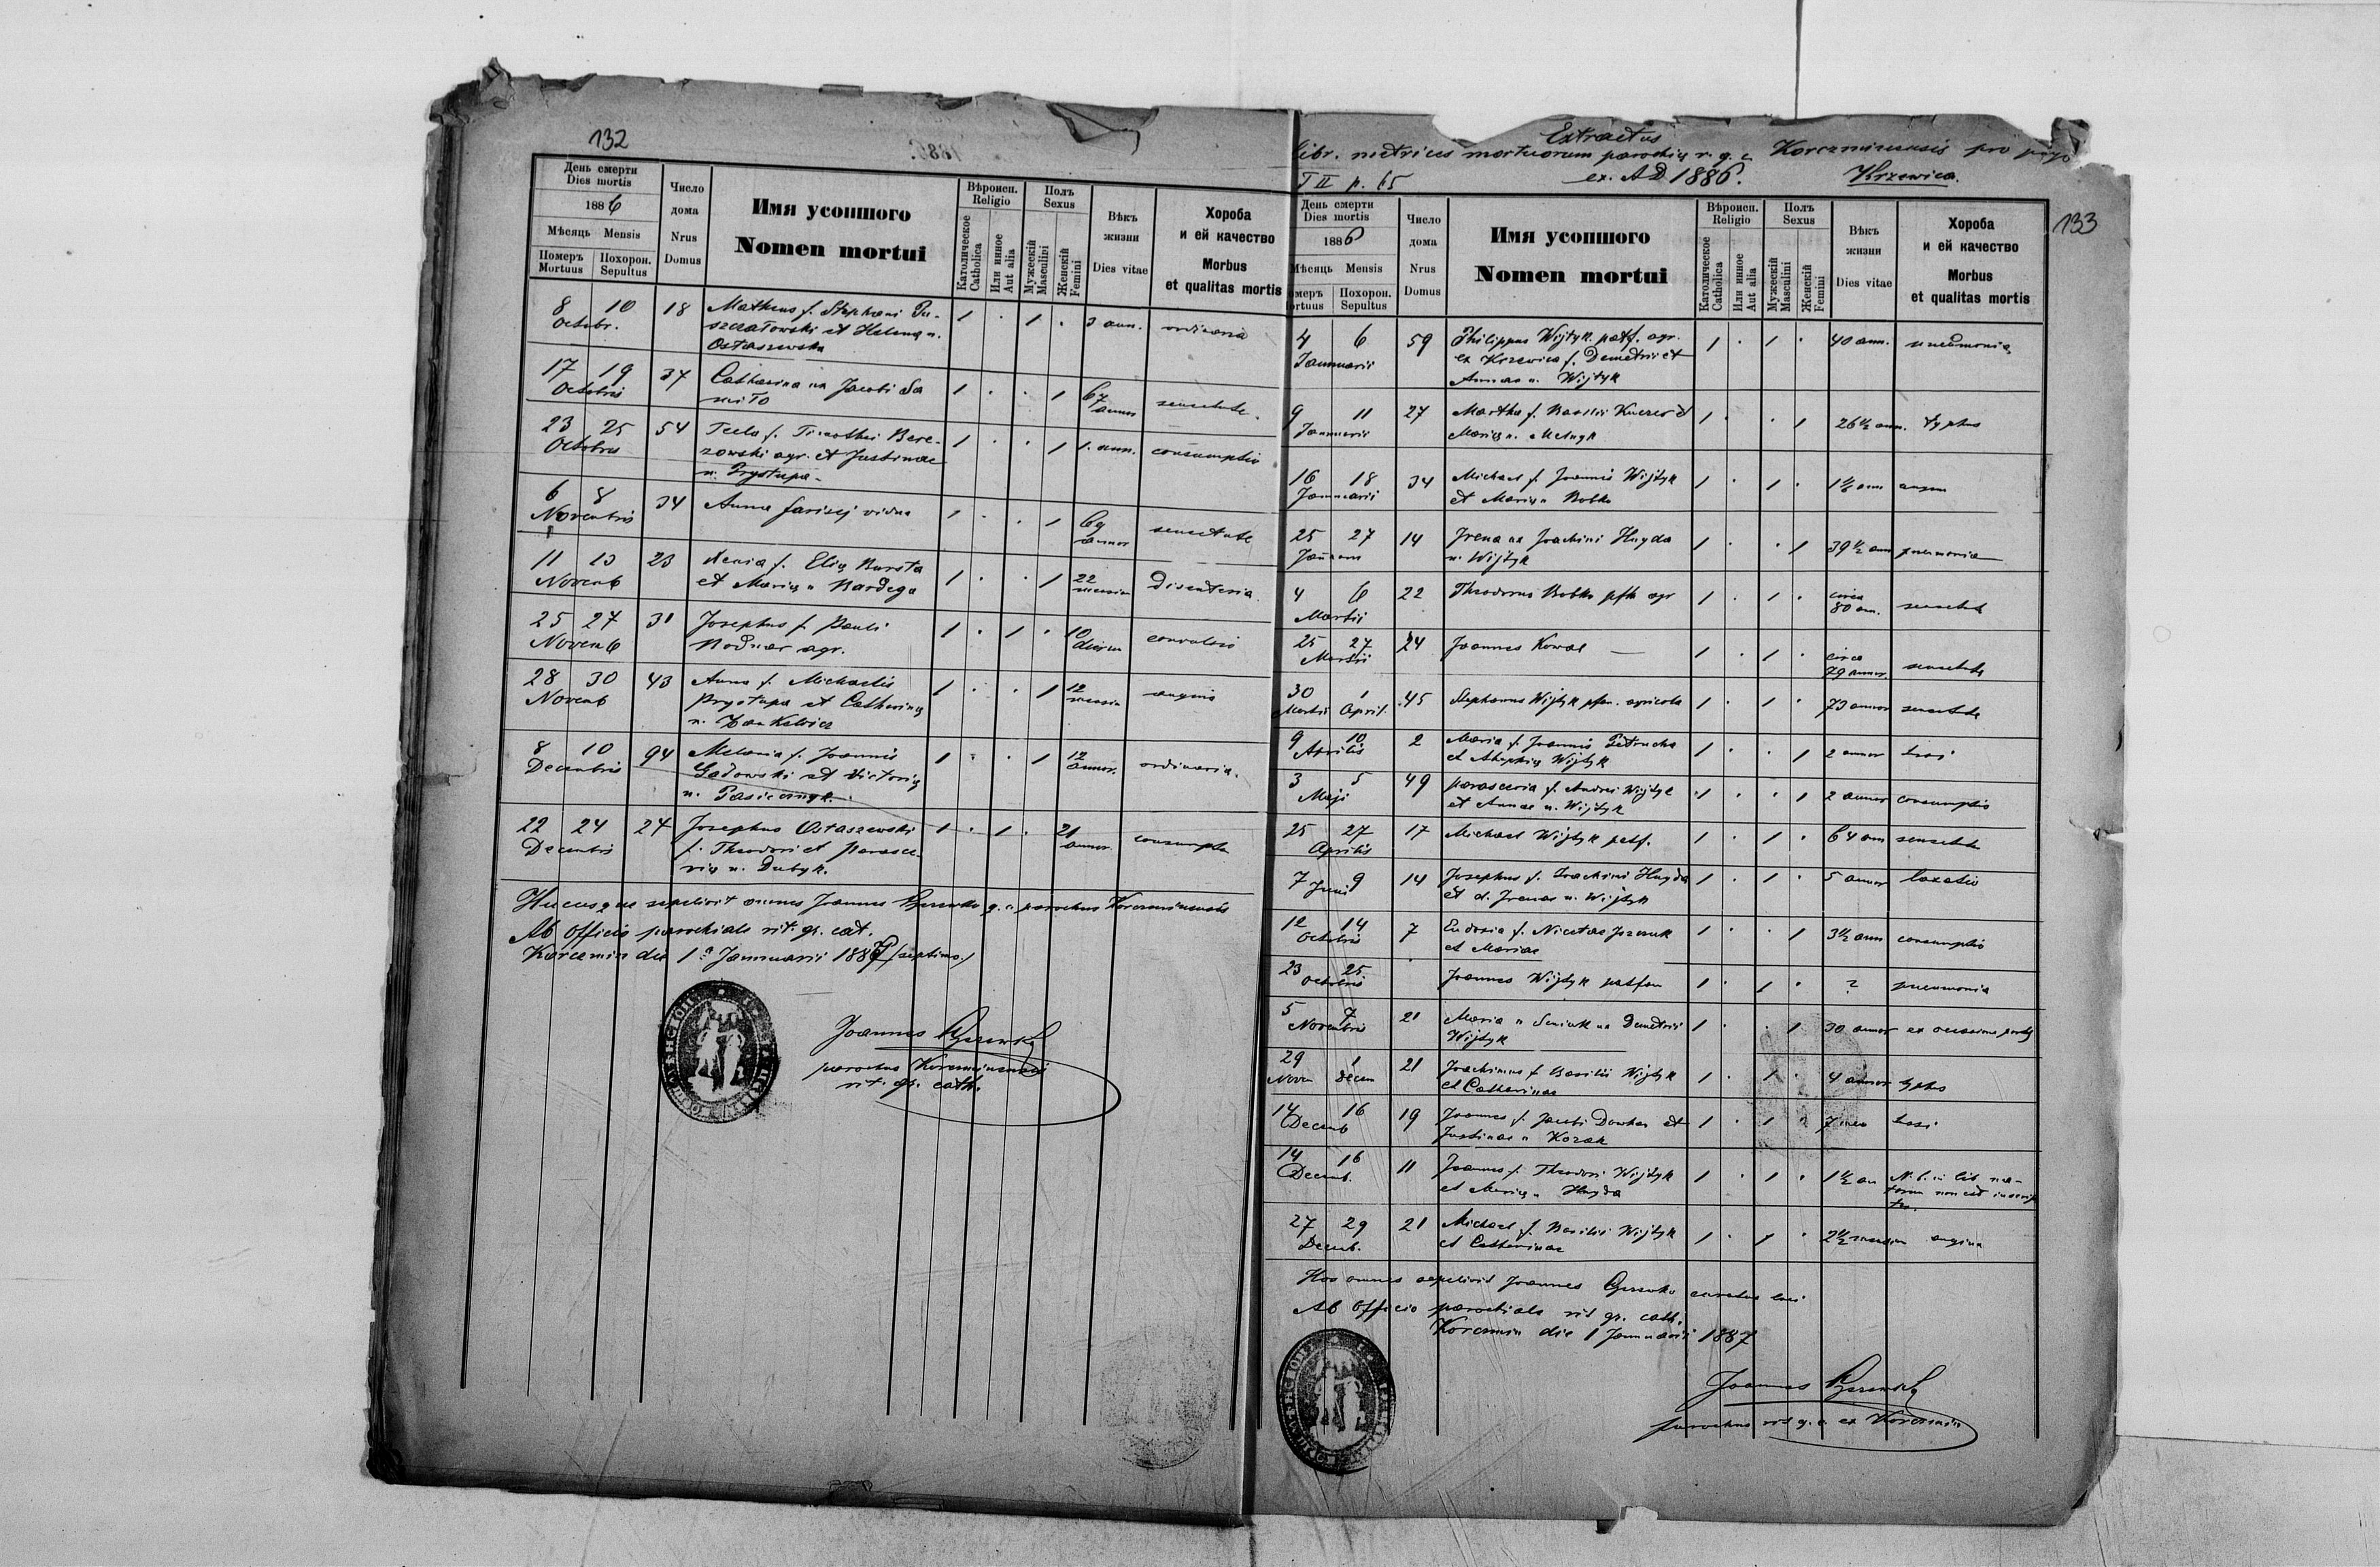 132
День смерти
Dies mortis
1886
Мѣсяцъ Mensis
Померъ Mortuus
Похорон. Sepultus
Число дома
Nrus Domus
Имя усопшого
Nomen mortui
Вѣроисп.
Religio
Католическое Catholica
Или инное Aut alia
Полъ
Sexus
Мужескій Masculini
Женскій Femini
Вѣкъ жизни
Dies vitae
Хороба
и ей качество
Morbus
et qualitas mortis
8 10 18 Matheus f. Stephani Pu- 1 . 1 . 3 ann. ordinaria
Octobr. szczałowski et Helenę n.
Ostaszewska
17 19 37 Catharina ux Jacobi Sa 1 . . 1 67 senectute.
Octobris annor
23 25 54 Tecla f. Timothei Bere- 1 . . 1 1. ann. consumptio
Octobris zowski agr. et Justinae
n. Prystupa.
6 8 34 Anna farisej vidua 1 . . 1 69 senectute
Novembris annor
11 13 23 Xenia f. Elię Bursta 1 . . 1 22 disenteria
Novemb et Marię n Bardega mensium
25 27 31 Josephus f. Pauli 1 . 1 . 10 convulsio
Novemb Bodnar agr. dierum
28 30 43 Anna f. Michaelis 1 . . 1 12 angina
Novemb Prystupa et Catharinę mensium
8 10 94 Melania f. Joannis 1 . . 1 12 ordinaria.
Decembris Gadowski et Victorię annor.
n. Pasiecznyk.
22 24 24 Josephus Ostaszewski 1 . 1 . 21 consumptio
Decembris f. Theodori et Parasce- annor.
vię n. Dubyk.
Hucusque sepelivit omnes Joannes g. c. parochus Korczminensis
Ab officio parochiali rit. gr. cat.
Korczmin die 1 Januarii 1887 (septimo)
Joannes
parochus Korczminensis
rit. gr. cath.
Extractus
libr. metrices mortuorum parochię r. g. c. Korczminensis pro pago
T II p. 65 ex. A D 1886. Krzewica.
133
День смерти
Dies mortis
1886
Мѣсяцъ Mensis
Похорон. Sepultus
Число дома
Nrus Domus
Имя усопшого
Nomen mortui
Вѣроисп.
Religio
Католическое Catholica
Или инное Aut alia
Полъ
Sexus
Мужескій Masculini
Женскій Femini
Вѣкъ жизни
Dies vitae
Хороба
и ей качество
Morbus
et qualitas mortis
4 6 59 Philippus Wijtyk patf. agr. 1 . 1 . 40 ann. pneumonia
Januarii ex Krzewica f. Demetrii et
Annae n. Wijtyk
9 11 27 Martha f. Basilii et 1 . . 1 26 1/2 ann. typhus
Januarii Marię n. Melnyk
16 18 34 Michael f. Joannis Wijtyk 1 . 1 . ann
Januarii et Marię n Bobko
25 27 14 Irena ux Joachimi Huyda 1 . . 1 39 1/2 ann pneumonia
n. Wijtyk
4 6 22 Theodorus Bobko agr 1 . 1 . circa senectute
Martii 80 an.
25 27 24 Joannes Kowal 1 . 1 . circa senectute
Martii 79 annor
30 1 45 Stephanus Wijtyk agricola 1 . 1 . 73 annor senectute
Martii April.
9 10 2 Maria f. Joannis Petrucha 1 . . 1 2 annor tussi
Aprilis et Wijtyk
3 5 49 Parascevia f. Andrei Wijtyk 1 . . 1 2 annor consumptio
Maji et Annae n. Wijtyk
25 27 17 Michael Wijtyk patf. 1 . 1 . 64 ann senectute
Aprilis
7 9 14 Josephus f. Joachimi Huyda 1 . 1 . 5 annor laxatio
Juni et d. Irenae n. Wijtyk
12 14 7 Eudoxia f. Nicetae 1 . . 1 3 1/2 ann consumptio
Octobris et Mariae
23 25 Joannes Wijtyk 1 . 1 . ? pneumonia
Octobris
5 7 21 Maria n Seniuk ux Demetrii 1 . . 1 30 annor ex occasione
Novembris Wijtyk
29 1 21 Joachimus f Basilii Wijtyk 1 . 1 . 4 annor typhus
Novem Decem et Catharinae
14 16 19 Joannes f. Jacobi Dowhan et 1 . 1 . 7 tussi
Decemb Justinae n Kozak
14 16 11 Joannes f. Theodori Wijtyk 1 . 1 . 1 1/2 an N. b. in lib. na-
Decemb. et Marię n Huyda torum non est inscrip
tus.
27 29 21 Michael f. Basilii Wijtyk 1 . 1 . 2 1/2 mensium angina
Decemb. et Catharinae
Hos omnes sepelivit Joannes curatus loci
Ab officio parochiale rit gr. cath.
Korczmin die 1 Januarii 1887
Joannes
parochus rit g. c. ex Korczmin